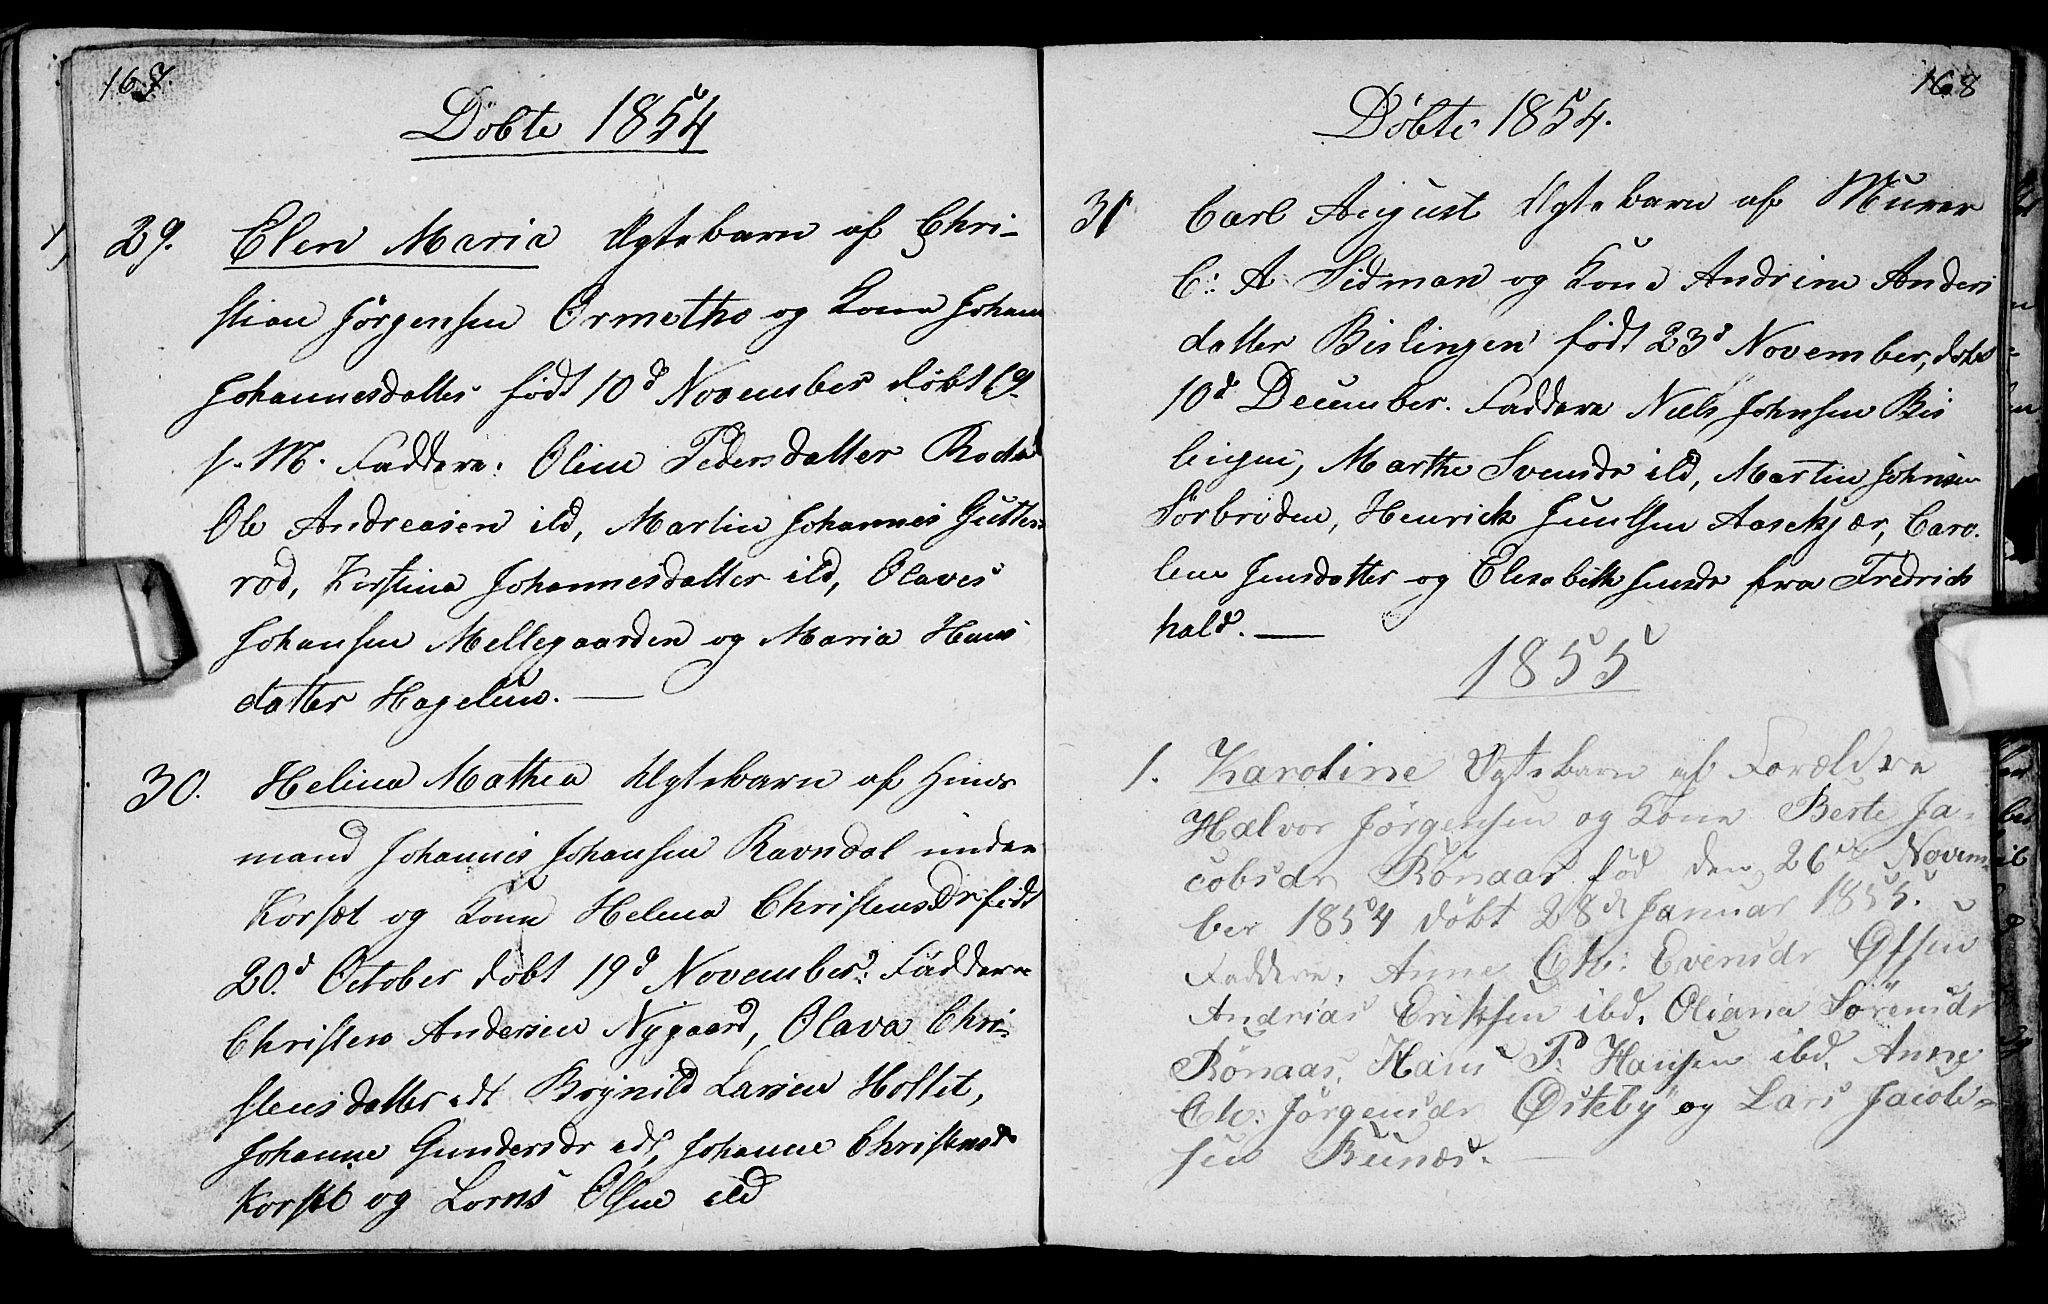 167.
Döbte 1854
29. Elen Maria Ægtebarn af Chri-
stian Jörgensen Ormetho og Kone Johane
Johannesdatter født 10d November døbt 19
s. M. Faddere: Oline Pedersdatter Röd
Ole Andreasen ibd, Martin Johannes Gutte
röd, Kirstine Johannesdatter ibd, Olaves
Johansen Mellegaarden og Maria Hans
datter Hagelin. —
30. Helina Mathea Ægtebarn af Huus
mand Johannes Johansen Ravndal under
Korset og Kone Helena Christensdr født
20d October døbt 19d November. Faddere
Christen Andersen Nygaard, Olava Chri-
stensdatter Brynild Larsen Holtet,
Johanne Gundersdr Johanne Christensdr
Korset og Lorns Olsen ibd
168
Döbte 1854.
31 Carl August Ægtebarn af Murer
C: A Sidman og Kone Andrine Anders
datter Bislingen født 23d November, døbt
10d December. Faddere Niels Johnsen Bis
lingen, Marthe Svendsdr ibd, Martin Johnsen
Sörbröden, Henrick Juulsen Aasekjær, Caro-
line Jensdatter og Elisabeth Jensdr fra Fredrichs
hald. —
1855
1. Karoline Ægtebarn af Forældre
Halvor Jørgensen og Kone Berte Ja-
cobsdr Rönaas fød den 26de Novem
ber 1854 døbt 28d Januar 1855.
Faddere, Anne Ch: Evensdr
Andrias Eriksen ibd. Oliana Sörensdr
Rönaas, Hans P: Hansen ibd, Anne
Ch: Jørgensdr Østeby og Lars Jacob-
sen Buнæs. —